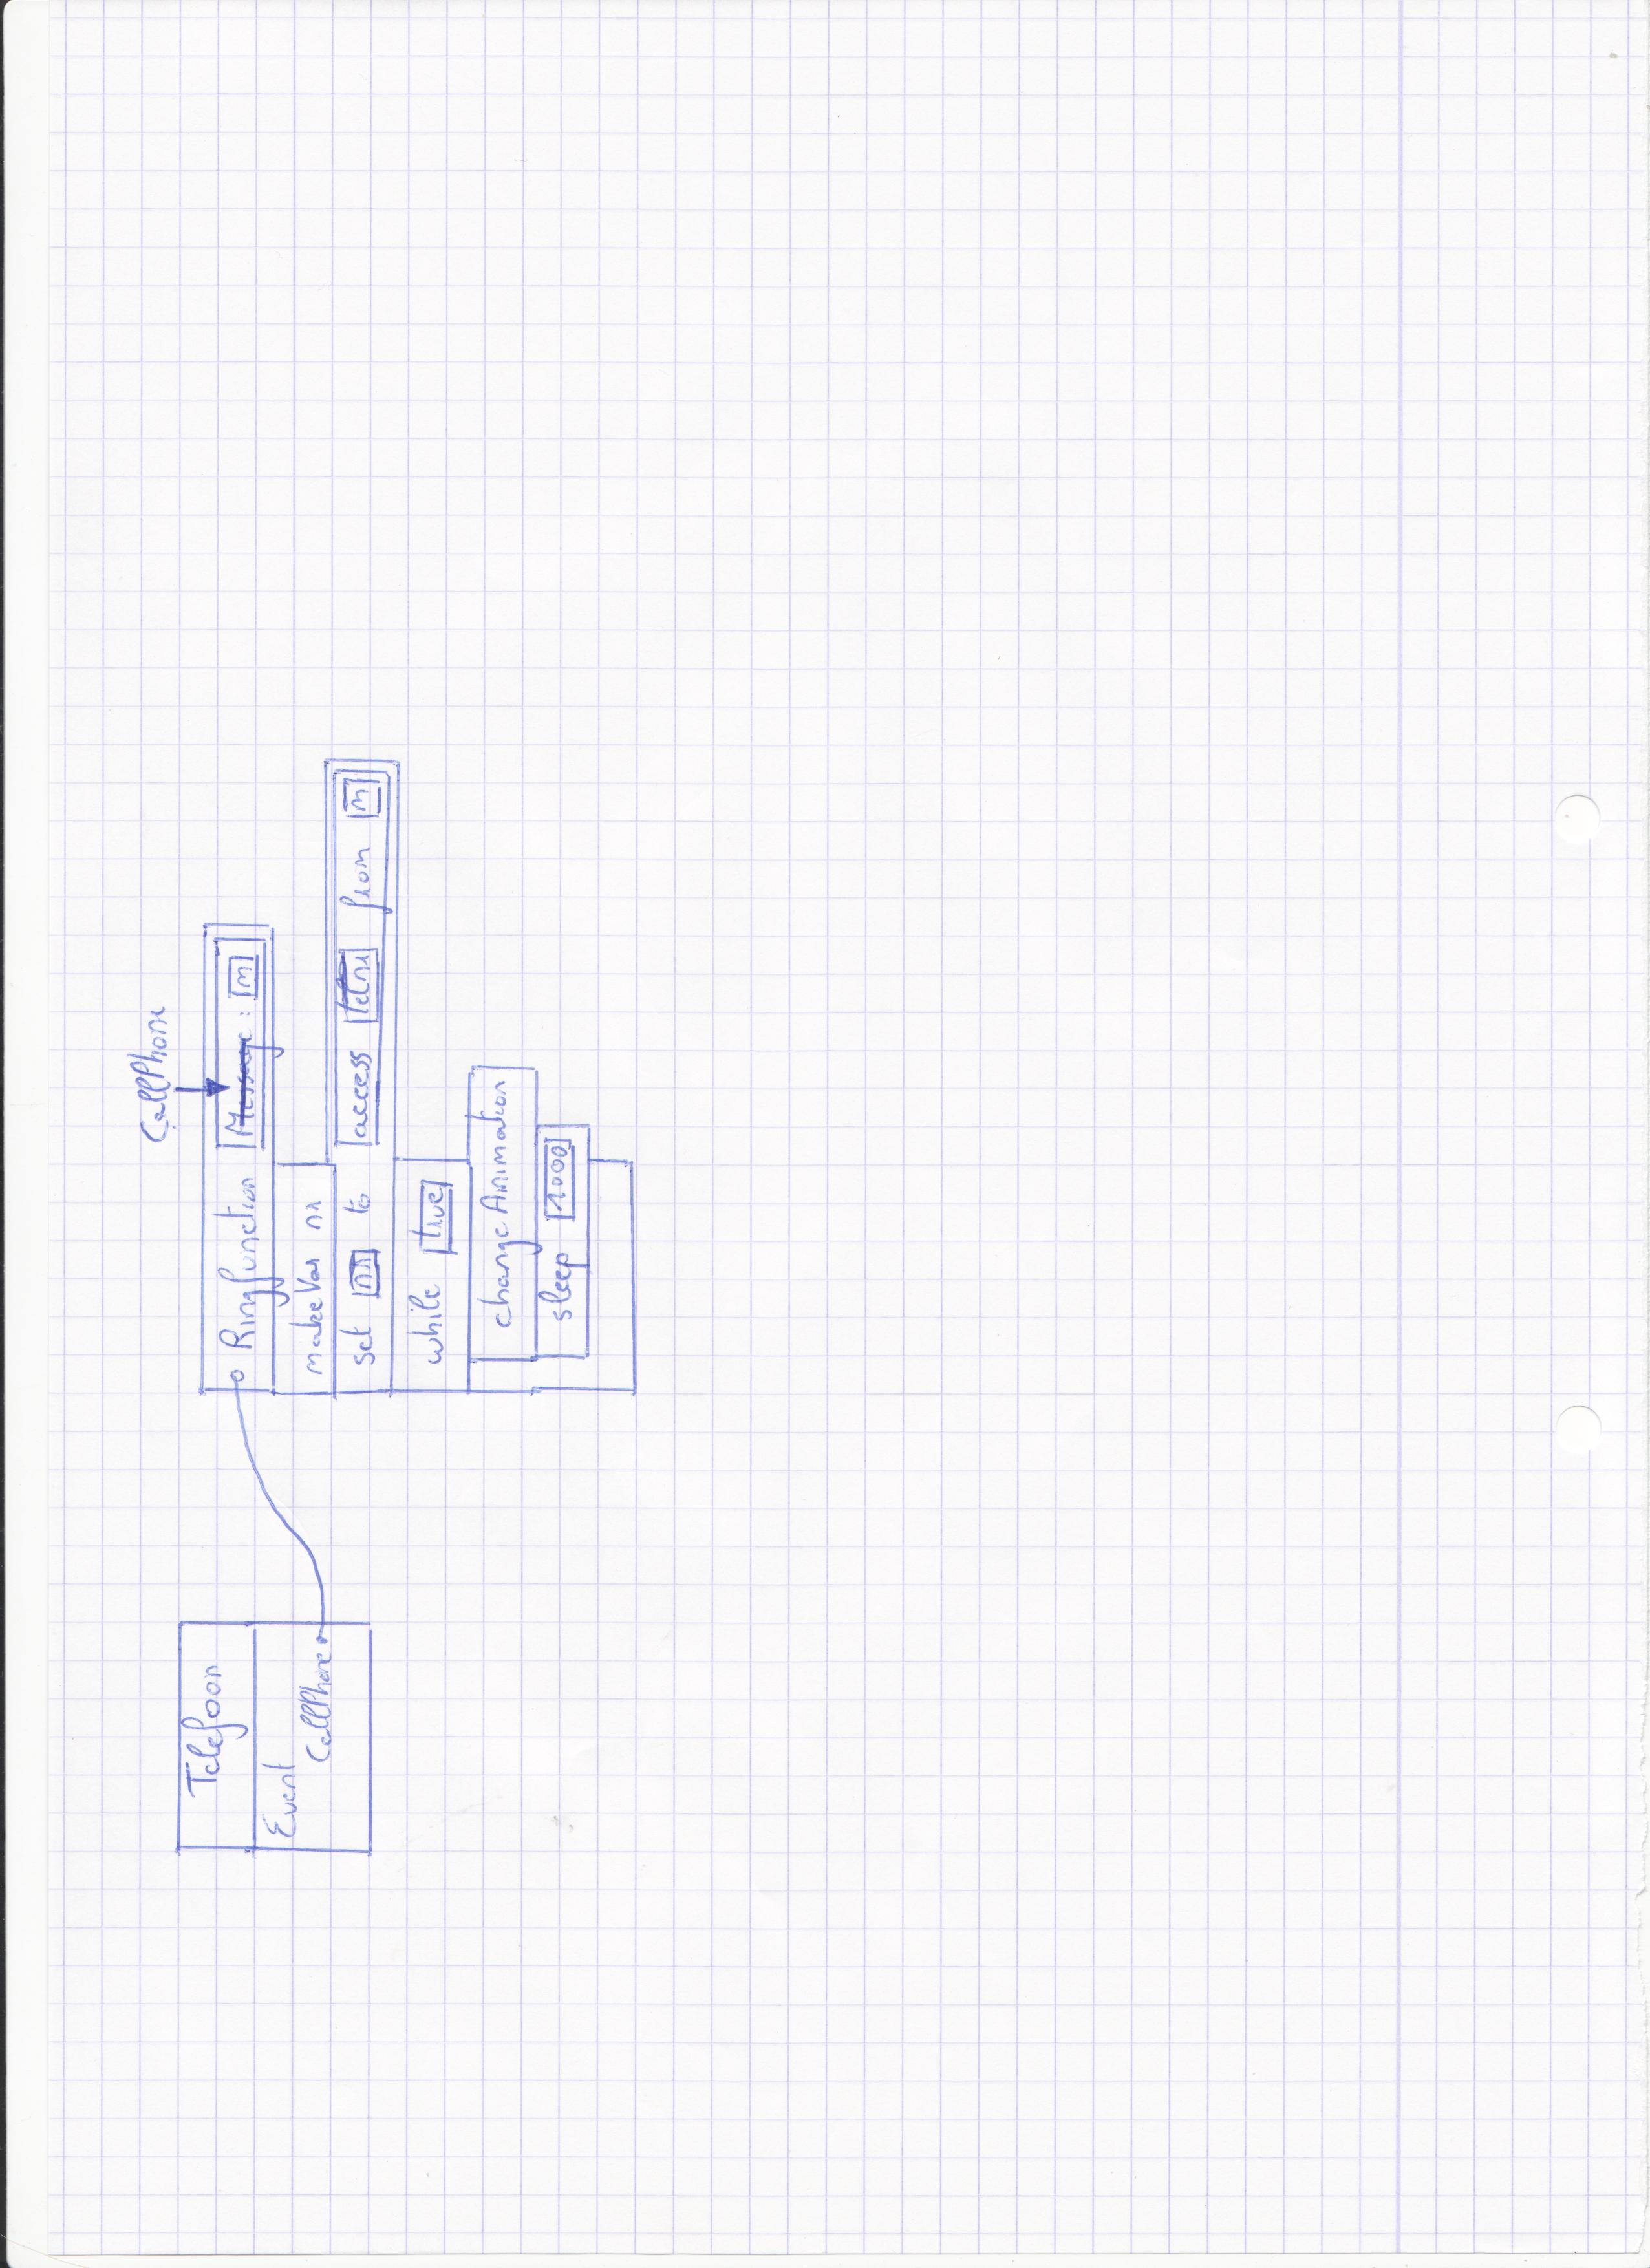 Telefoon
Event
CallPhone
CallPhone
RingFunction Message : m
makeVar nr
set nr to access telnr from m
while true
changeAnimation
sleep 1000